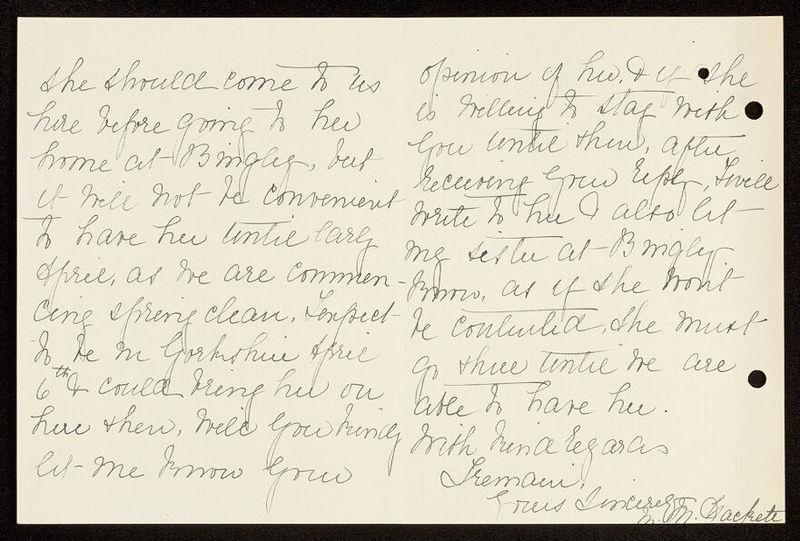 she should come to us
here before going to her
home at Bingley, but
it will not be convenient
to have her until early
April, as we are commen-
cing spring clean. I expect
to be in Yorkshire April
6th & could bring her on
here then, will you kindly
let me know your
opinion of her, & if she
is willing to stay with
you until then, after
receiving your reply, I will
write to her & also let
my sister at Bingley
know, as if she won't
be contented, she must
go there until we are
able to have her.
With kind regards
I remain,
Yours Sincerely
M. Hackett